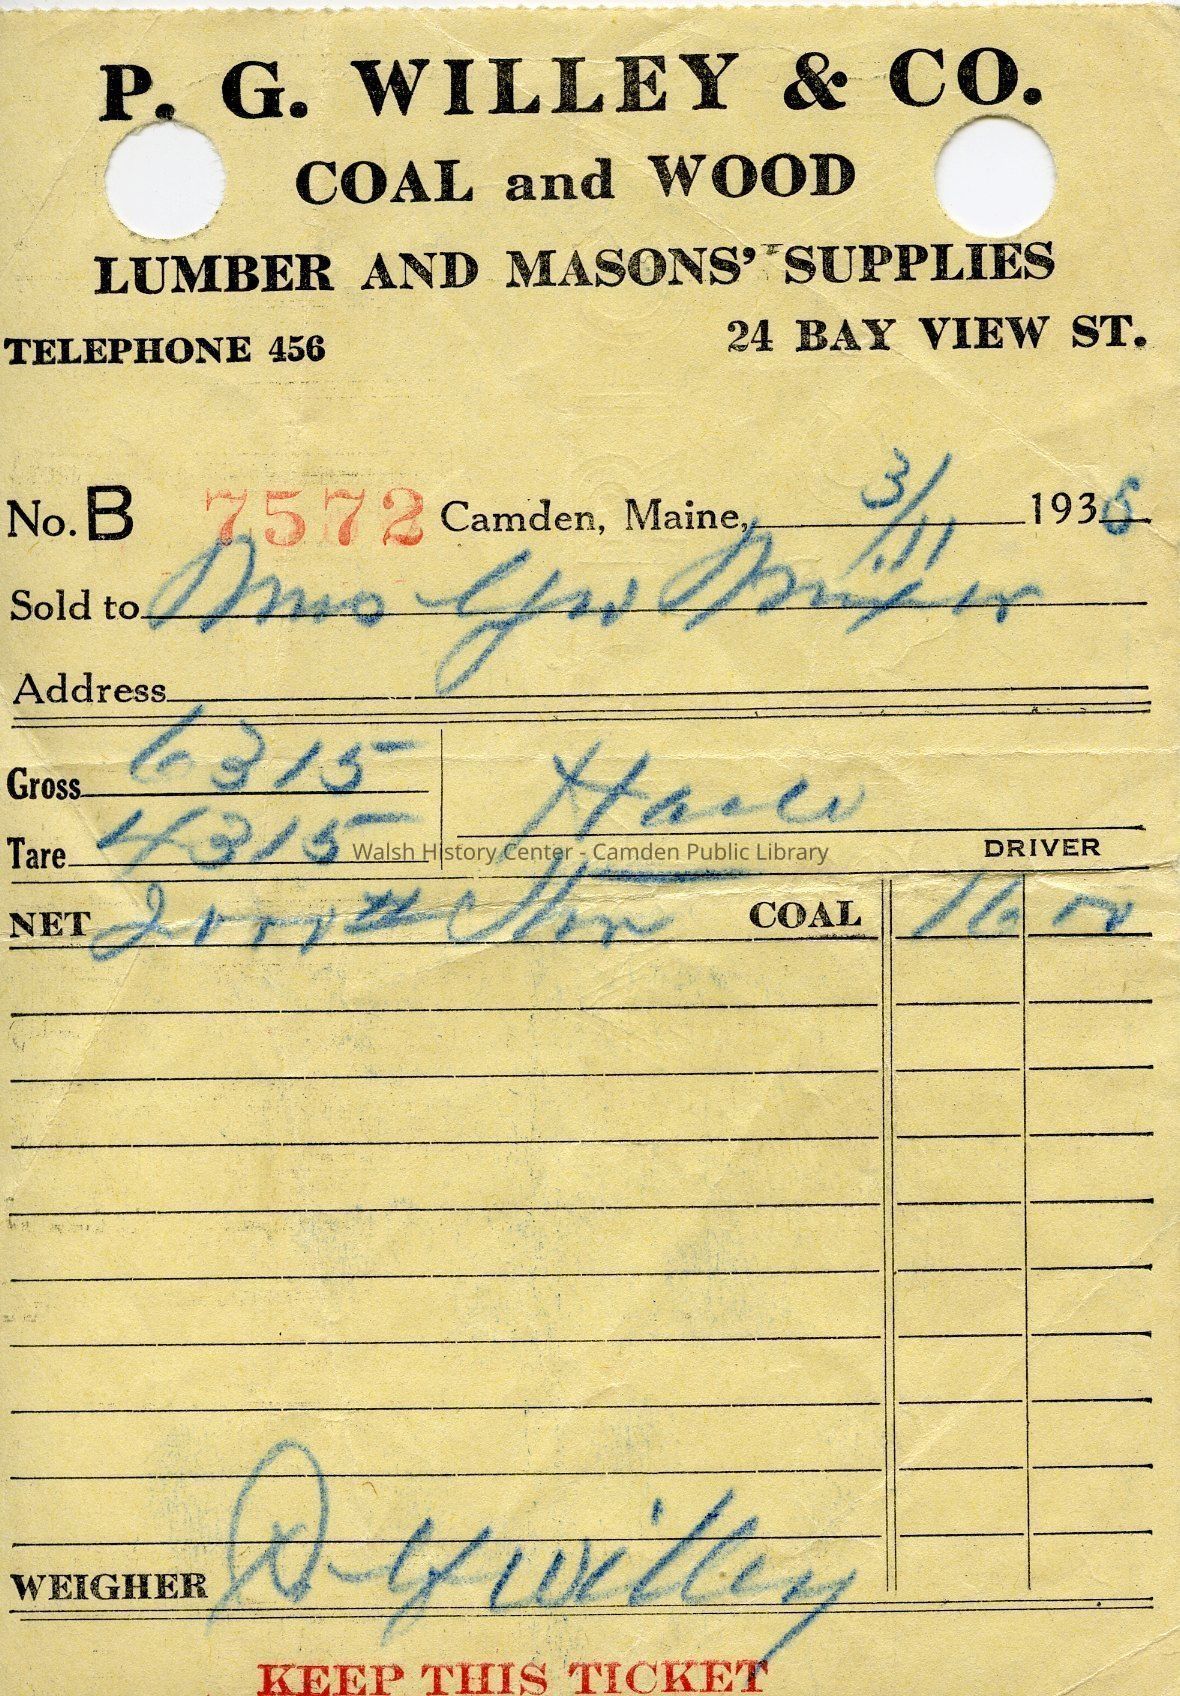 P. G. WILLEY & CO.
COAL and WOOD
LUMBER AND MASONS' SUPPLIES
TELEPHONE 456 24 BAY VIEW ST.
No. B 7572 Camden, Maine, 3/11 1936
Sold to Mrs Geo
Address
Gross 6315
Tare 4315
DRIVER
Walsh History Center - Camden Public Library
NET 2000 # COAL 16 00
WEIGHER P G Willey
KEEP THIS TICKET